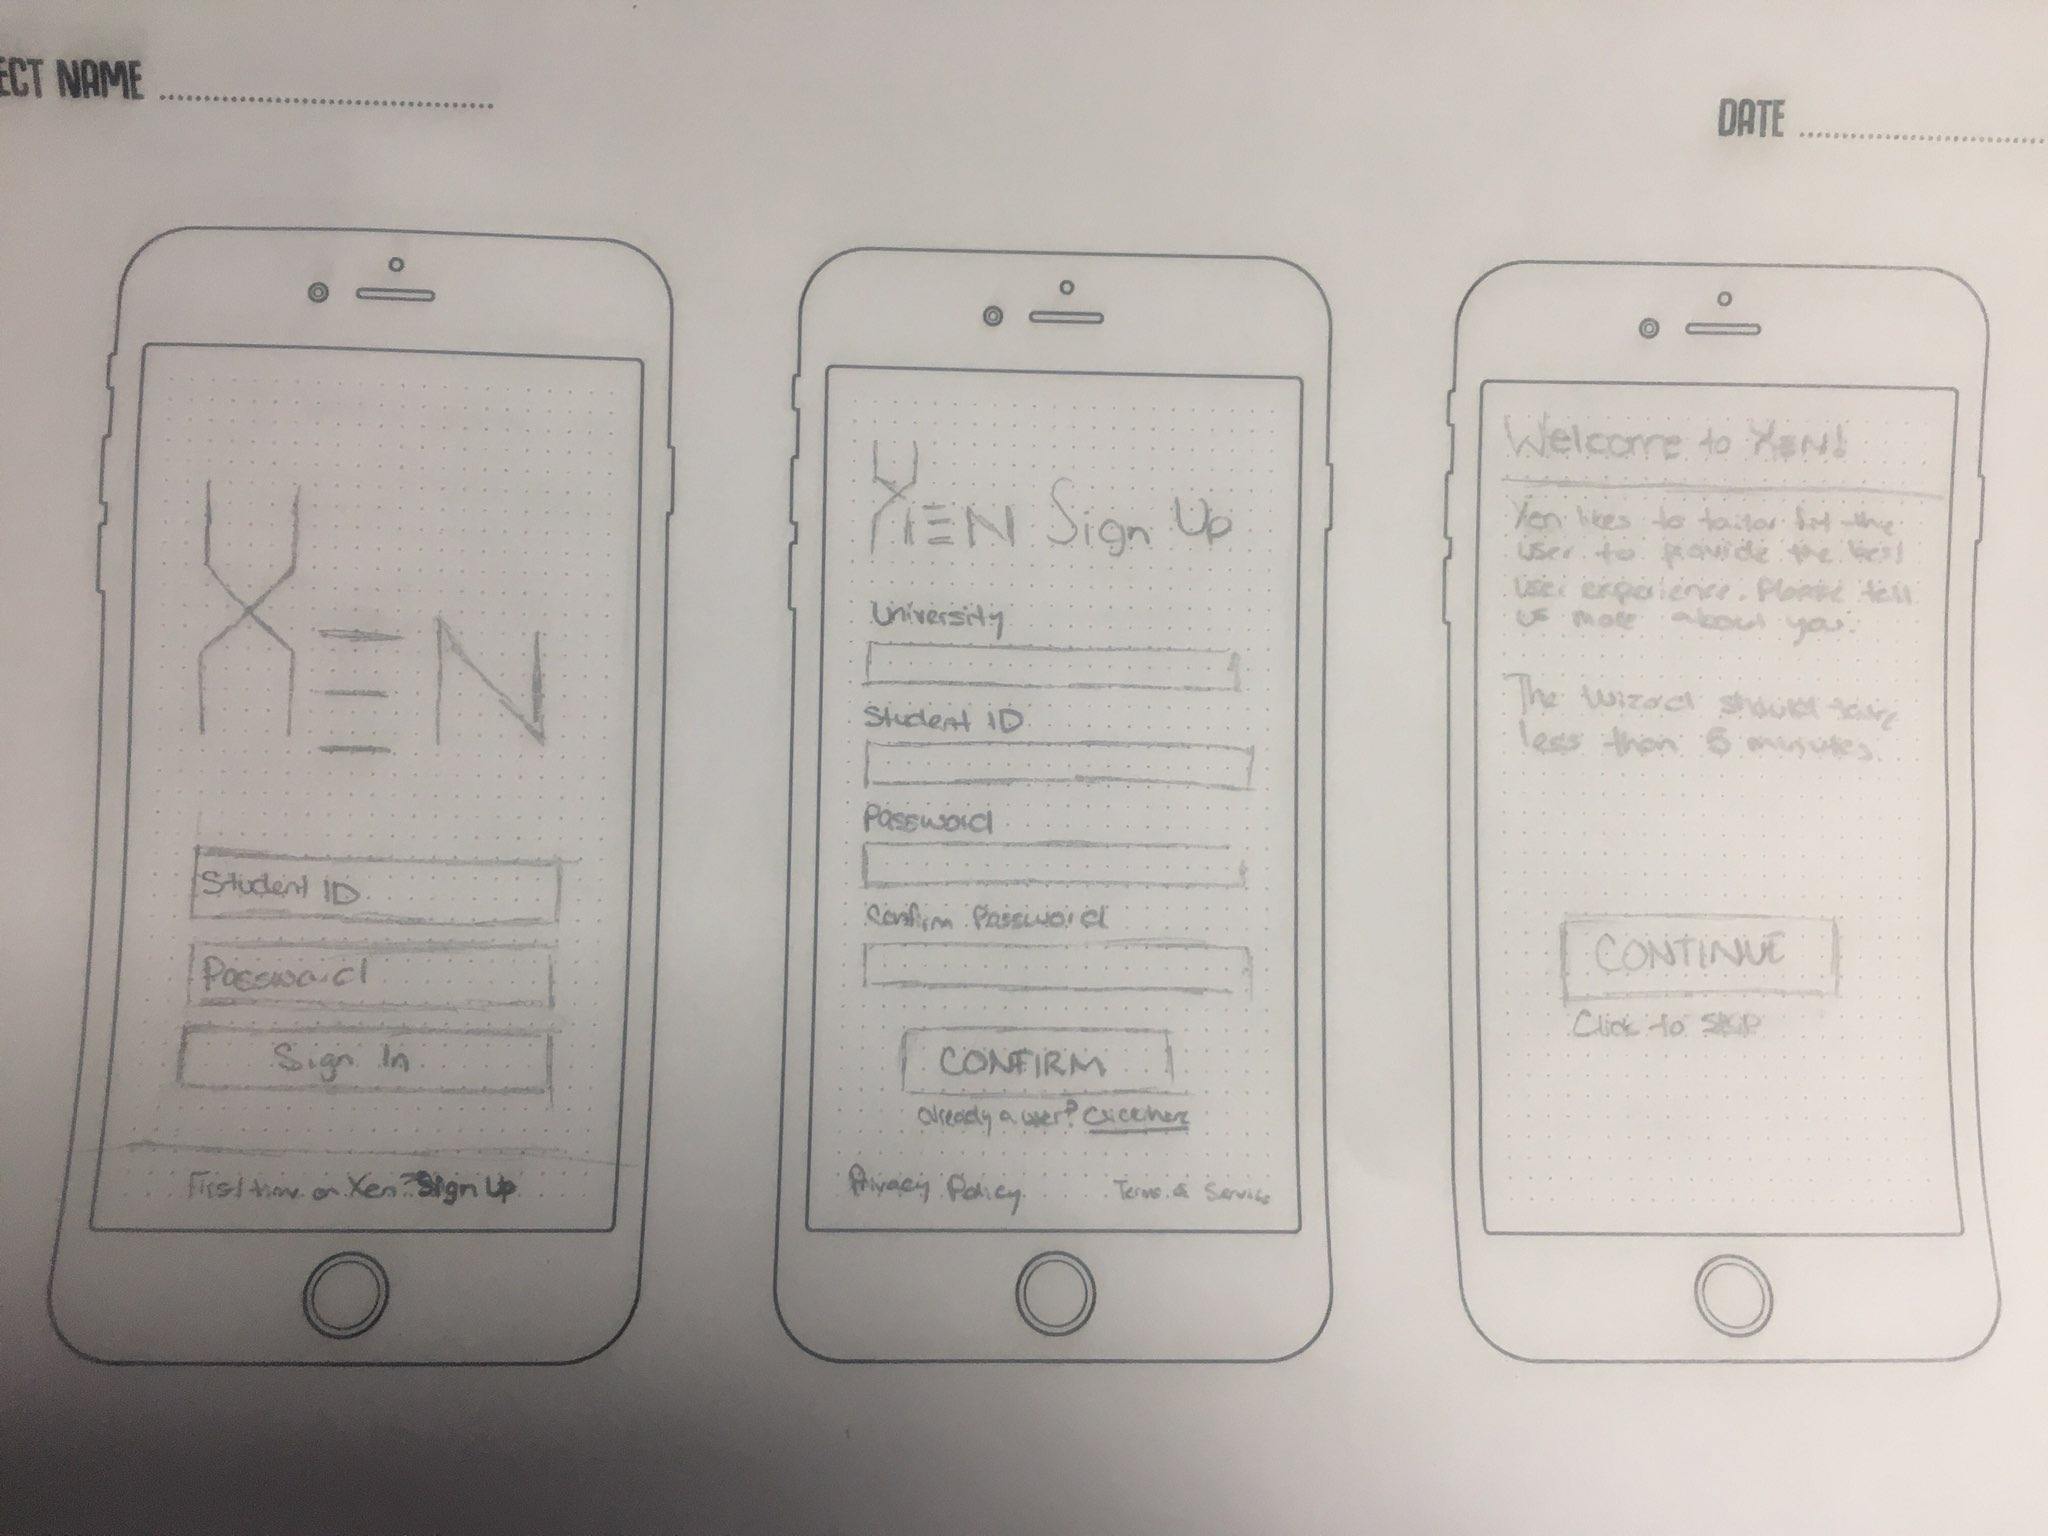 ECT NAME
DATE
XEN
Student ID
Password
Sign In
First time on Xen? Sign Up
XEN Sign Up
University
Student ID
Password
Confirm Password
CONFIRM
already a user? Click here
Privacy Policy Terms & Service
Welcome to XEN!
Xen likes to tailor fit the
user to provide the best
user experience. Please tell
us more about you.
The wizard should take
less than 5 minutes.
CONTINUE
Click to SKIP